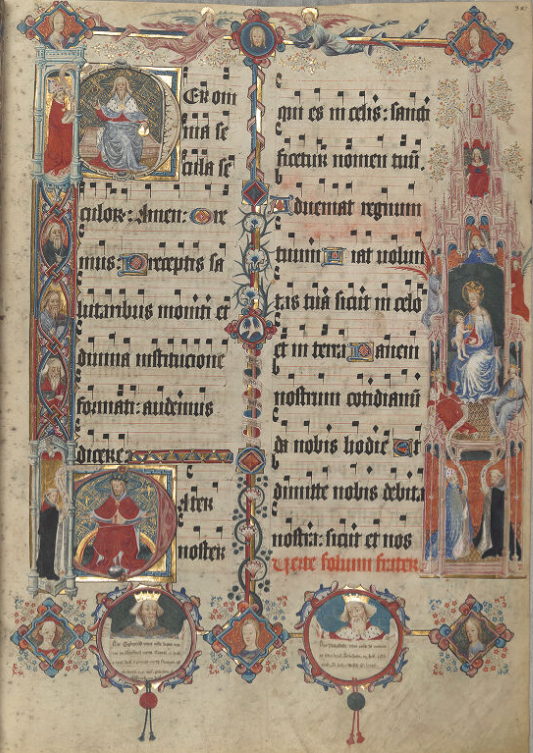 Per om
nia se
cula se
culor: Amen: Ore
mus: Preceptis sa
lutaribus moniti et
diuina institucione
formati: audemus
dicere
Pater
noster
qui es in celis: sancti
ficetur nomen tuū.
Adueniat regnum
tuum Fiat uolun
tas tua sicut in celo
et in terra Panem
nostrum cotidianū
da nobis hodie Et
dimitte nobis debita
nostra: sicut et nos
Verte folium frater